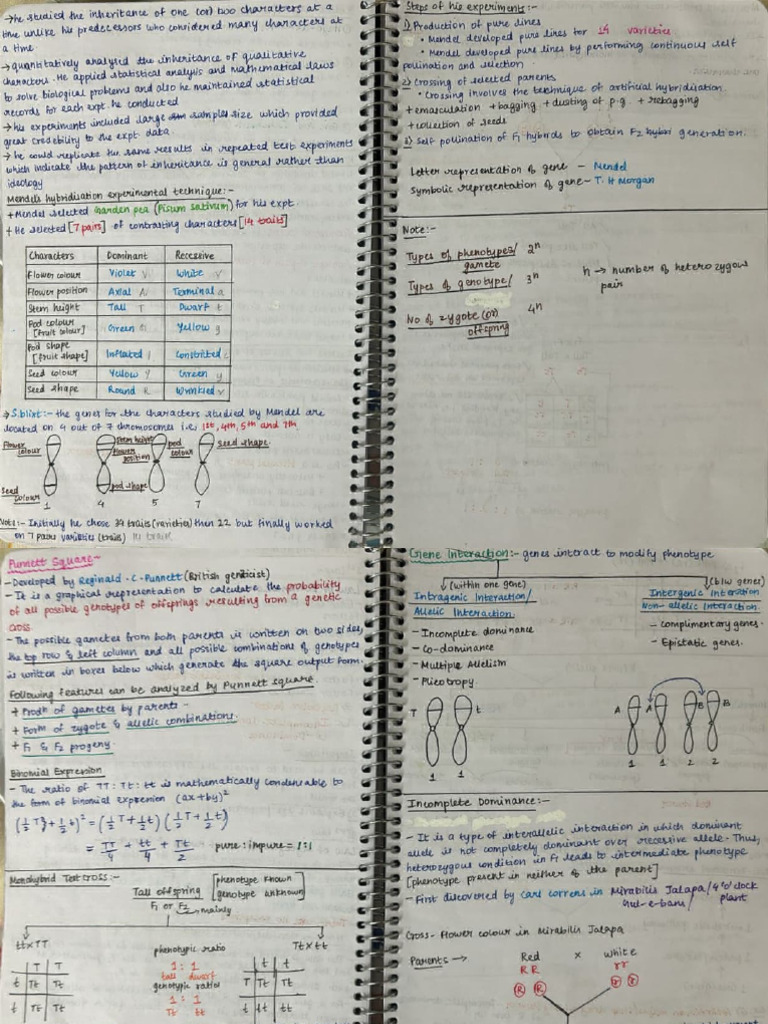 →he studied the inheritance of one (or) two characters at a
time unlike his predecessors who considered many characters at
a time.
→quantitatively analysed the inheritance of qualitative
characters. He applied statistical analysis and mathematical laws
to solve biological problems and also he maintained statistical
records for each expt. he conducted
→his experiments included large sample size which provided
great credebility to the expt data.
→ he could replicate the same results in repeated test experiments
which indicate the pattern of inheritance is general rather than
ideology
Mendels hybridisation experimental technique:-
→Mendel selected Garden pea (Pisum sativum) for his expt.
→He selected [7 pairs] of contrasting characters [14 traits]
Characters Dominant Recessive
Flower colour Violet V White v
Flower position Axial A Terminal a
Stem height Tall T Dwarf t
Pod colour [Fruit colour] Green G Yellow g
Pod shape [fruit shape] Inflated I Constricted
Seed colour Yellow Y Green y
Seed shape Round R Wrinkled r
→ S.blixt:- the genes for the characters studied by Mendel are
located on 4 out of 7 chromosomes i.e, 1st, 4th, 5th and 7th.
Flower colour
Stem height
Flower position
pod colour
Seed shape
Seed colour
pod shape
1 4 5 7
Note:- Initially he chose 34 traits (varieties) then 22 but finally worked
on 7 pairs varieties (traits) 14 traits
Steps of his experiments:-
1) Production of pure lines
• Mendel developed pure lines for 14 varieties
• Mendel developed pure lines by performing continuous self
pollination and selection.
2) Crossing of selected parents
• Crossing involves the technique of artificial hybridisation
→emasculation →bagging →dusting of p.g →rebagging
→collection of seeds
3) Self pollination of F1 hybrids to obtain F2 hybrid generation.
Letter representation of gene - Mendel
Symbolic representation of gene- T. H Morgan
Note:-
Types of phenotypes/ gamete 2ⁿ
n → number of heterozygous pair
Types of genotype/ 3ⁿ
No of zygote (or) offspring 4ⁿ
Punnett Square-
- Developed by Reginald.C.Punnett (British geneticist)
- It is a graphical representation to calculate the probability
of all possible genotypes of offsprings resulting from a genetic
cross.
- The possible gametes from both parents is written on two sides,
the top row & left column and all possible combinations of genotypes
is written in boxes below which generate the square output form.
Following features can be analyzed by Punnett square.
→ Prodn of gametes by parents-
→ Form of zygote & allelic combinations.
→ F1 & F2 progeny.
Binomial Expression
- The ratio of TT: Tt: tt is mathematically condensable to
the form of binomial expression (ax+by)²
(½T+½t)² = (½T+½t) (½T+½t)
= TT/4 + tt/4 + Tt/2 pure:impure=1:1
Monohybrid Test cross:-
Tall offspring [phenotype known genotype unknown]
F1 or F2 mainly
tt×TT
Tt×tt
T T
t Tt Tt
t Tt Tt
phenotypic ratio
1:1
tall dwarf
genotypic ratio
1:1
Tt tt
t t
T Tt Tt
t tt tt
Gene Interaction:- genes interact to modify phenotype
(within one gene)
(b/w genes)
Intragenic Interaction/
Allelic Interaction
- Incomplete dominance
- Co-dominance
- Multiple Allelism
- Pleotropy.
Intergenic Interaction
Non-allelic Interaction.
- complimentary genes.
- Epistatic genes.
T t
1 1
A A B B
1 1 2 2
Incomplete Dominance:-
- It is a type of interallelic interaction in which dominant
allele is not completely dominant over recessive allele- Thus,
heterozygous condition in F1 leads to intermediate phenotype
[phenotype present in neither of the parent]
- First discovered by Carl correns in Mirabilis Jalapa/4'o'clock plant
Gul-e-bans/
Cross- Flower colour in Mirabilis Jalapa
Parents → Red × white
RR rr
R R r r